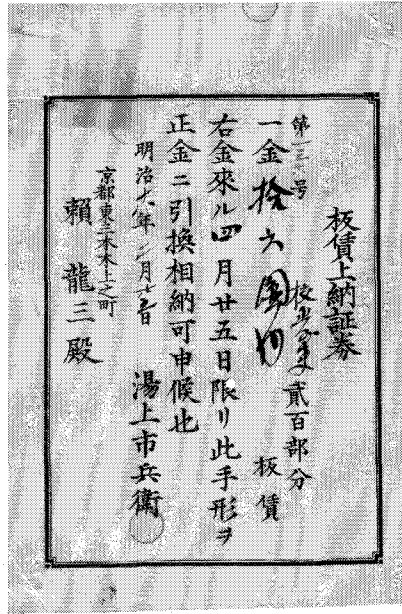 板賃上納証券
第一三号 校 貳百部分
一金拾六圓也 板賃
右金來ル四月廿五日限リ此手形ヲ
正金ニ引換相納可申候也
明治十八年二月廿五日 湯上市兵衛
京都東三本木上之町
賴龍三殿